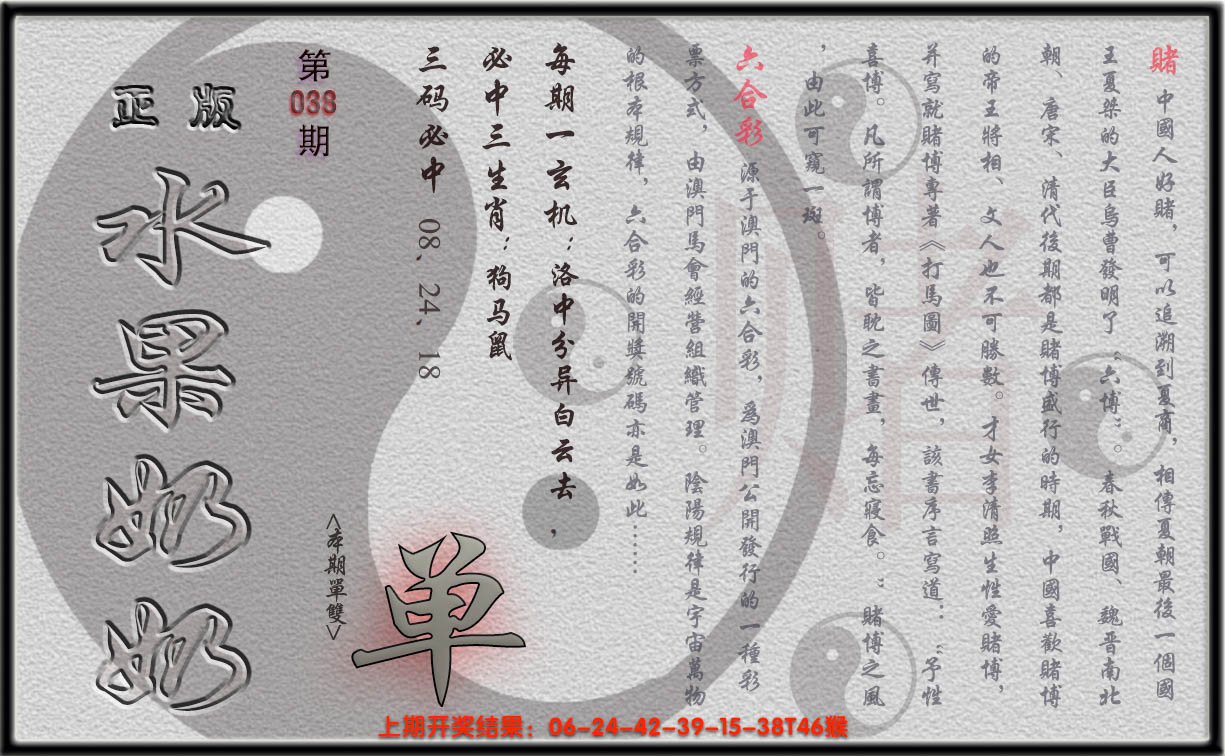 賭 中國人好賭，可以追溯到夏商，相傳夏朝最後一個國
王夏桀的大臣烏曹發明了“六博”。春秋戰國、魏晋南北
朝、唐宋、清代後期都是賭博盛行的時期，中國喜歡賭博
的帝王將相、文人也不可勝數。才女李清照生性愛賭博，
并寫就賭博專著《打馬圖》傳世，該書序言寫道：“予性
喜博。凡所謂博者，皆耽之書晝，每忘寢食。”賭博之風
，由此可窺一斑。
六合彩 源于澳門的六合彩，爲澳門公開發行的一種彩
票方式，由澳門馬會經營組織管理。陰陽規律是宇宙萬物
的根本規律，六合彩的開獎號碼亦是如此……
每期一玄机：洛中分异白云去，
必中三生肖：狗马鼠
三码必中 08、24、18
单
<本期單雙>
第038期
正版
水果奶奶
赌
上期开奖结果：06-24-42-39-15-38T46猴